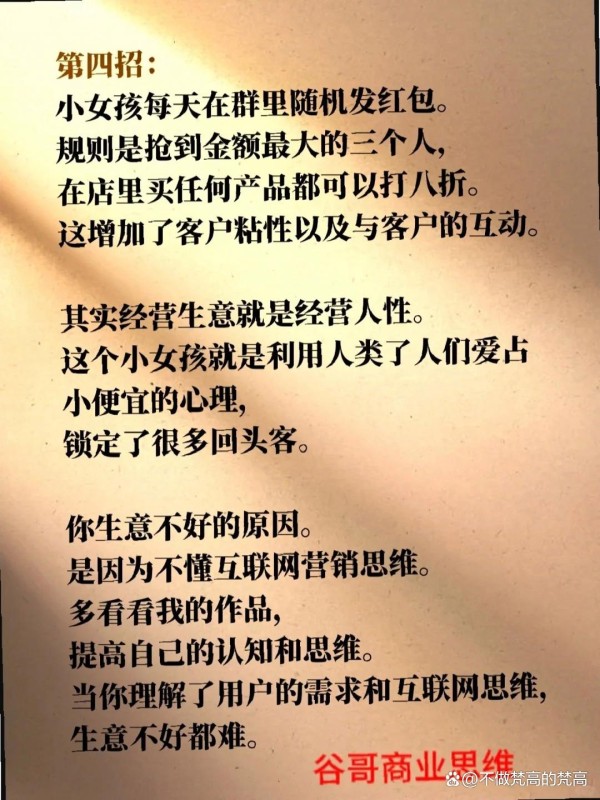 第四招：
小女孩每天在群里随机发红包。
规则是抢到金额最大的三个人，
在店里买任何产品都可以打八折。
这增加了客户粘性以及与客户的互动。
其实经营生意就是经营人性。
这个小女孩就是利用人类了人们爱占
小便宜的心理，
锁定了很多回头客。
你生意不好的原因。
是因为不懂互联网营销思维。
多看看我的作品，
提高自己的认知和思维。
当你理解了用户的需求和互联网思维，
生意不好都难。
谷哥商业思维
@不做梵高的梵高